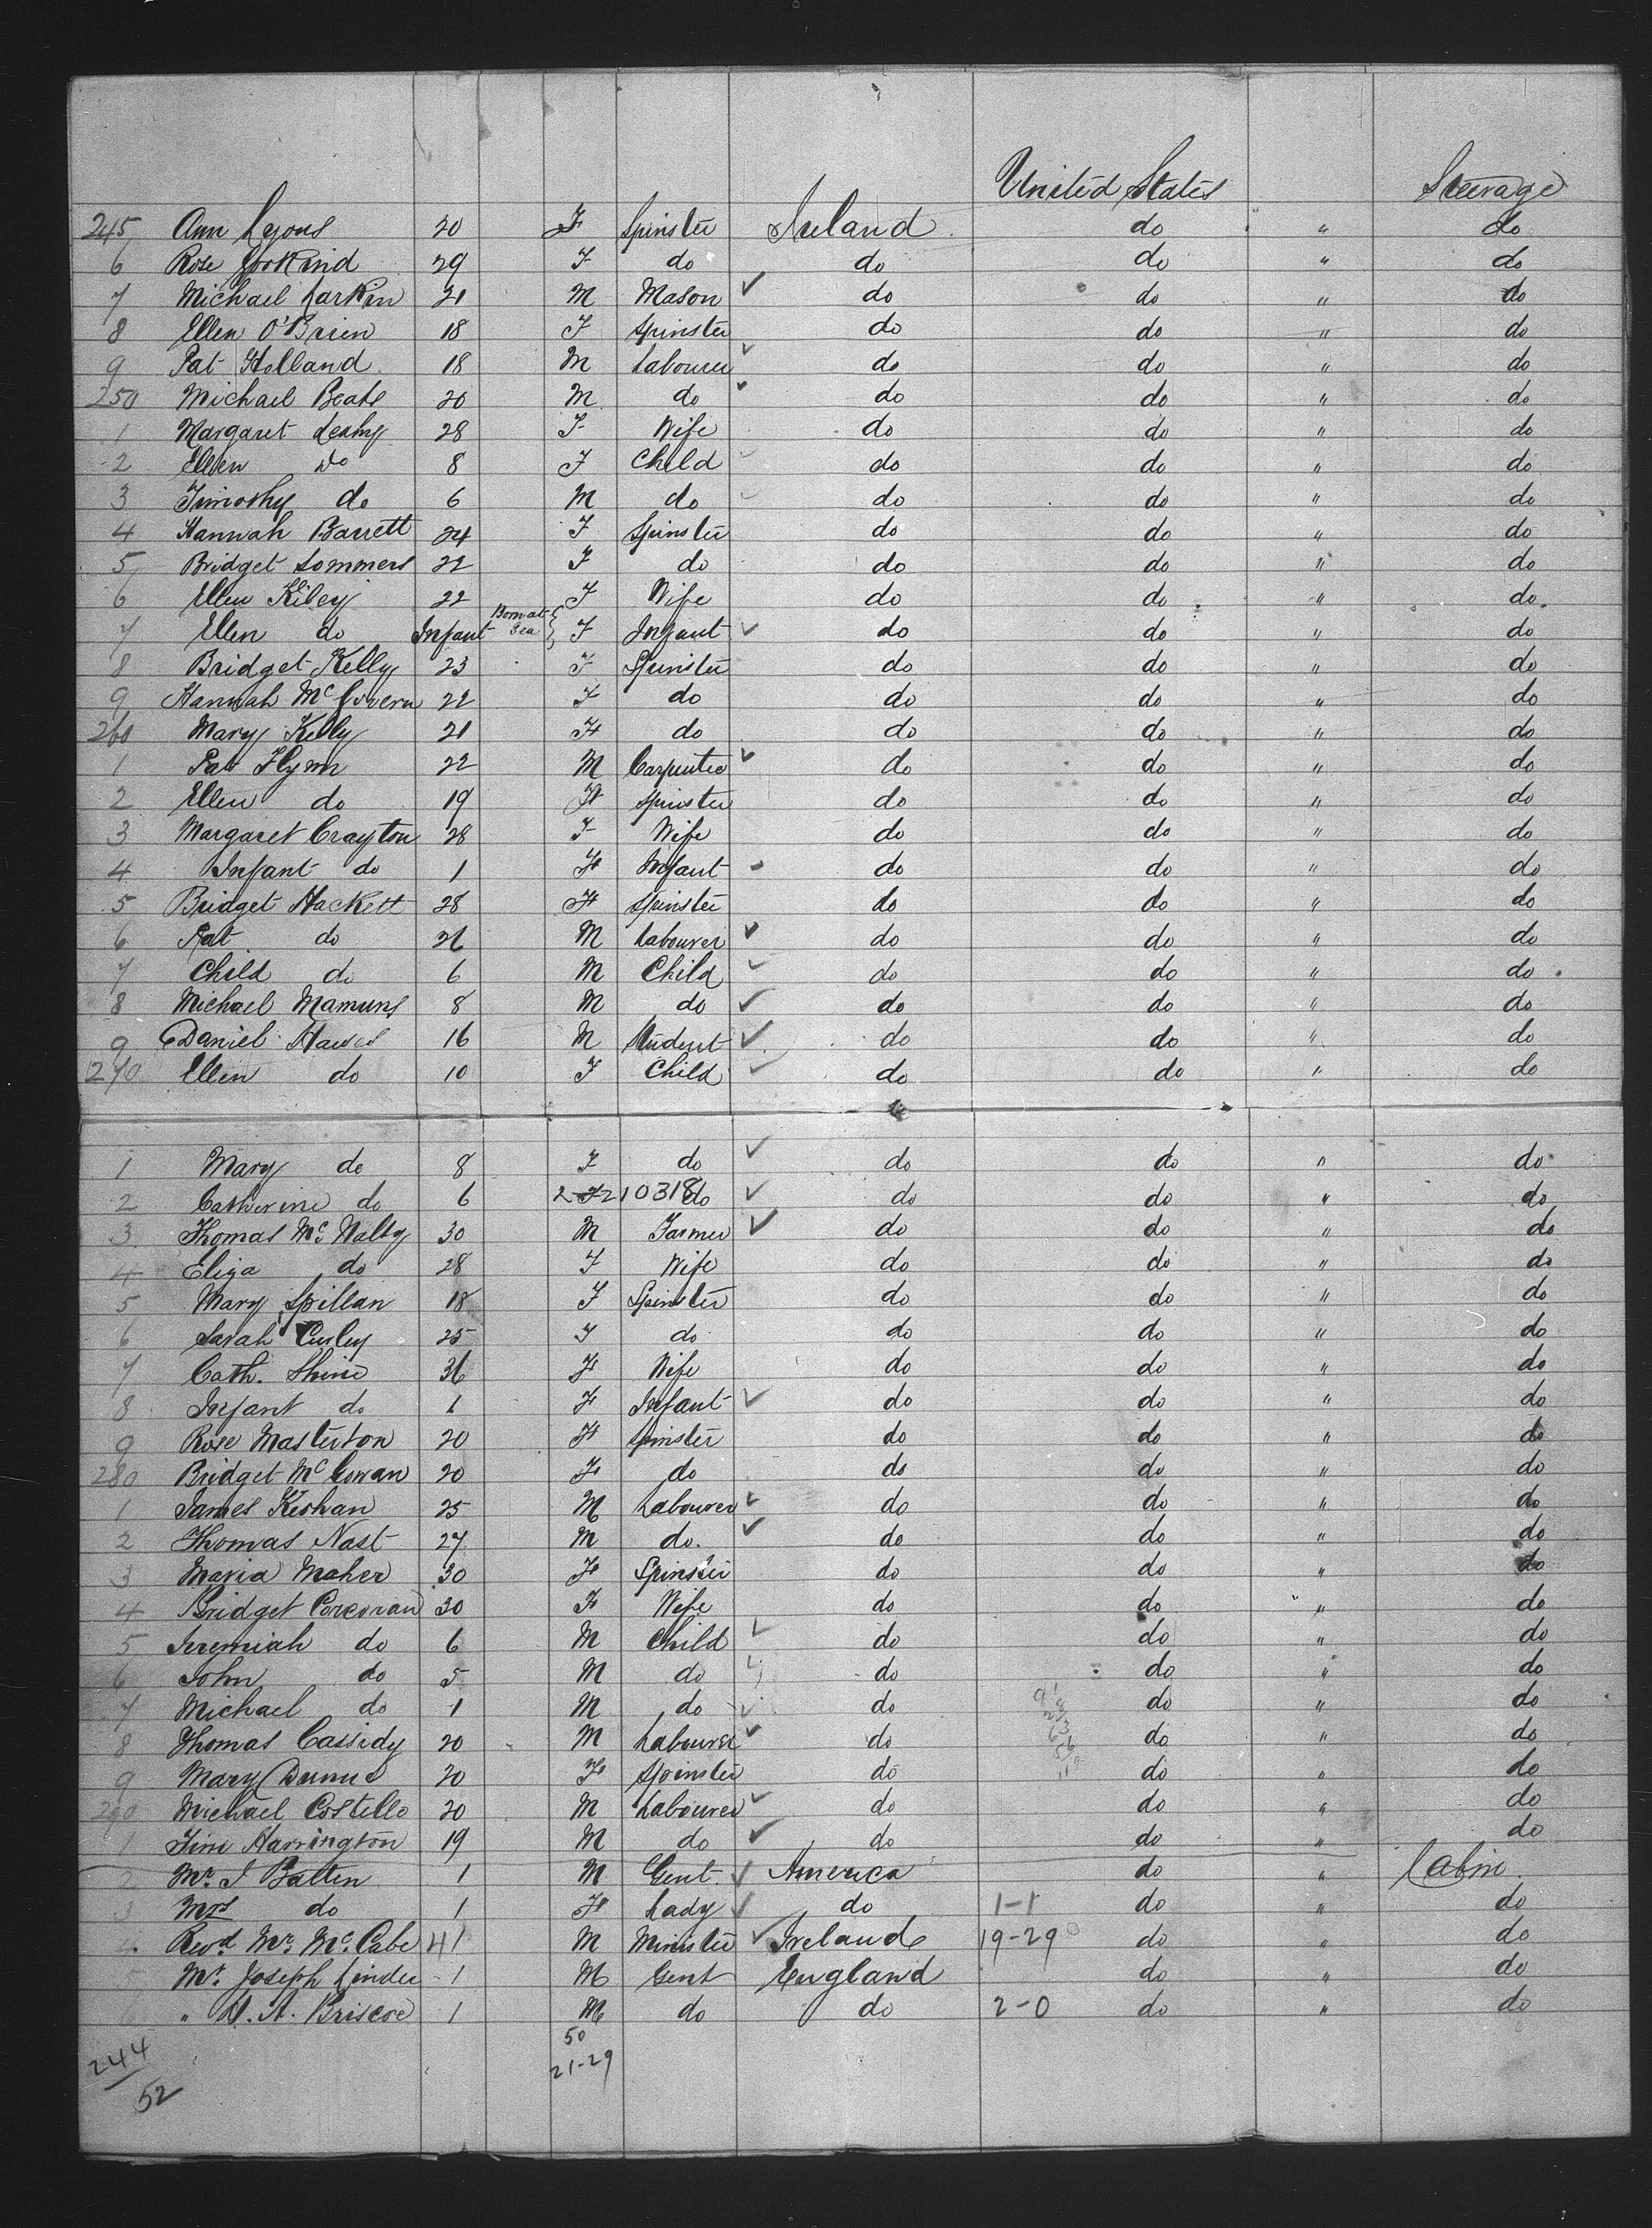 United States Steerage
245 Ann Lyons 20 F Spinster Ireland do " do
6 Rose 29 F do do do " do
7 Michael Larkin 21 M Mason do do " do
8 Ellen O'Brien 18 F Spinster do do " do
9 Pat Holland 18 M Labourer do do " do
250 Michael 20 M do do do " do
1 Margaret Leahy 28 F Wife do do " do
2 Ellen do 8 F Child do do " do
3 Timothy do 6 M do do do " do
4 Hannah Barrett 24 F Spinster do do " do
5 Bridget Sommers 22 F do do do " do
6 Ellen Kiley 22 F Wife do do " do
7 Ellen do Infant Born at Sea F Infant do do " do
8 Bridget Kelly 23 F Spinster do do " do
9 Hannah McGovern 22 F do do do " do
260 Mary Kelly 21 F do do do " do
1 Pat Flynn 22 M Carpenter do do " do
2 Ellen do 19 F Spinster do do " do
3 Margaret Crayton 28 F Wife do do " do
4 Infant do 1 F Infant do do " do
5 Bridget Hackett 28 F Spinster do do " do
6 Pat do 26 M Labourer do do " do
7 Child do 6 M Child do do " do
8 Michael 8 M do do do " do
9 Daniel Hawes 16 M Student do do " do
270 Ellen do 10 F Child do do " do
1 Mary do 8 F do do do " do
2 Catherine do 6 2-F210318 do do do " do
3 Thomas McNalty 30 M Farmer do do " do
4 Eliza do 28 F Wife do do " do
5 Mary Spillan 18 F Spinster do do " do
6 Sarah Curley 25 F do do do " do
7 Cath. Shine 36 F Wife do do " do
8 Infant do 1 F Infant do do " do
9 Rose Masterton 20 F Spinster do do " do
280 Bridget McGowan 20 F do do do " do
1 James Keohan 25 M Labourer do do " do
2 Thomas Nast 27 M do. do do " do
3 Maria Maher 30 F Spinster do do " do
4 Bridget Corcoran 30 F Wife do do " do
5 Jeremiah do 6 M Child do do " do
6 John do 5 M do do do " do
7 Michael do 1 M do do do " do
8 Thomas Cassidy 20 M Labourer do do " do
9 Mary 20 F Spinster do do " do
290 Michael Costello 20 M Labourer do do " do
1 Tim Harrington 19 M do do do " do
2 Mr. J Batten 1 M Gent. America do " Cabin
3 Mrs do 1 F Lady do 1-1 do " do
4 Revd. Mr. McCabe 41 M Minister Ireland 19-29 do " do
Mr. Joseph Linder 1 M Gent England do " do
" Briscoe 1 M do do 2-0 do " do
50
244 21-29
52